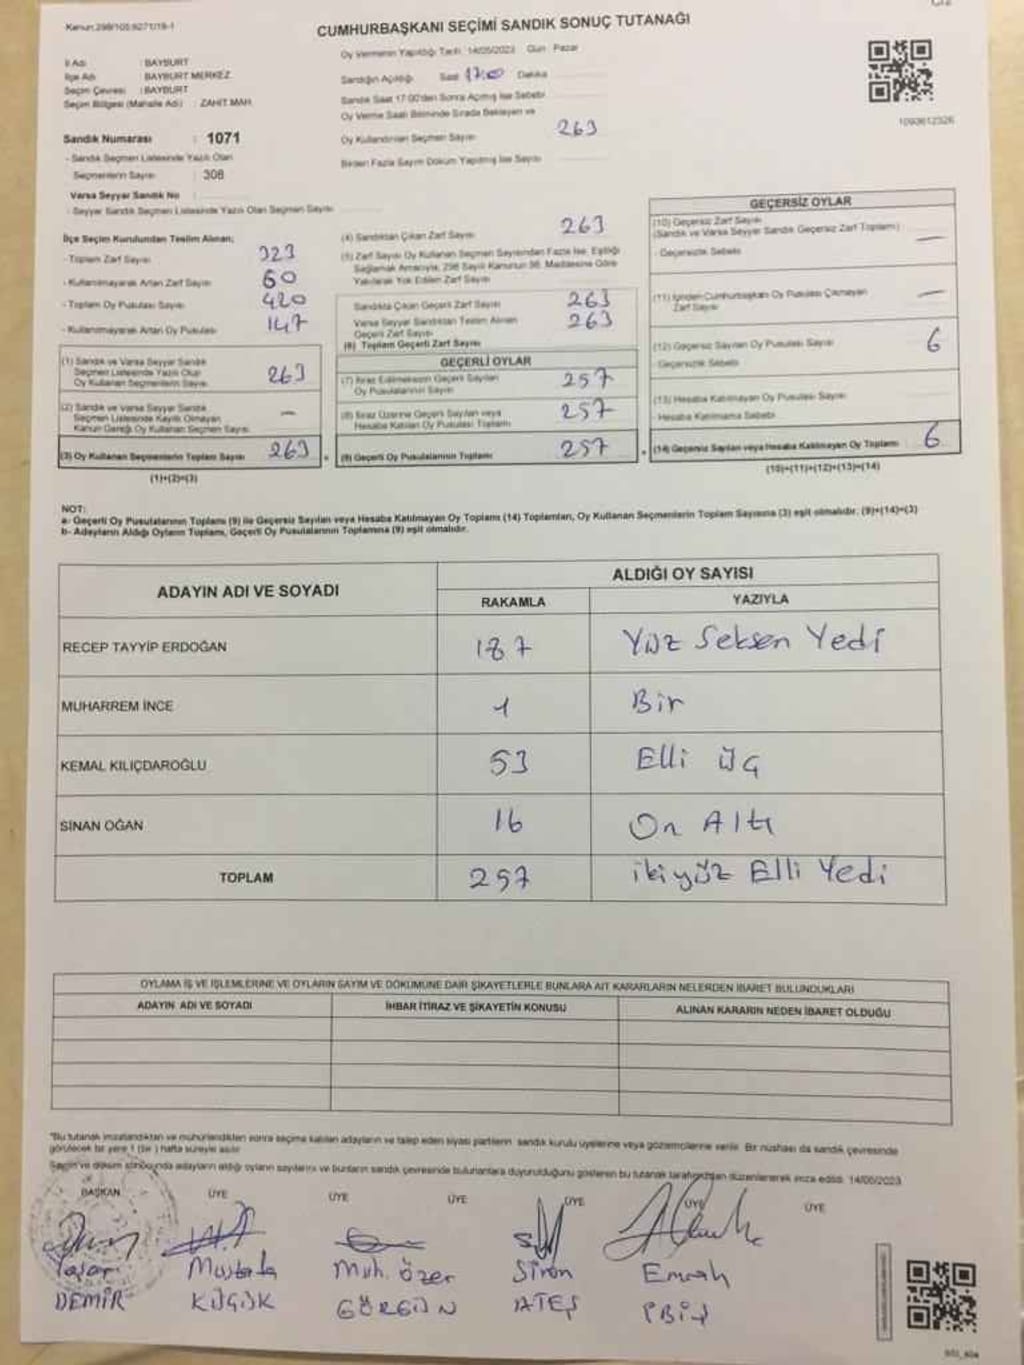 Kanun:298/105;6271/19-1
CUMHURBAŞKANI SEÇİMİ SANDIK SONUÇ TUTANAĞI
Oy Vermenin Yapıldığı Tarih 14/05/2023 Gün Pazar
İl Adı : BAYBURT
İlçe Adı : BAYBURT MERKEZ
Seçim Çevresi : BAYBURT
Seçim Bölgesi (Mahalle Adı) : ZAHİT MAH.
Sandığın Açıldığı Saat 17:00 Dakika
Sandık Saat 17:00'den Sonra Açılmış İse Sebebi
Oy Verme Saati Bitiminde Sırada Bekleyen ve
Oy Kullandırılan Seçmen Sayısı 263
Birden Fazla Sayım Döküm Yapılmış İse Sayısı
1093612326
Sandık Numarası : 1071
- Sandık Seçmen Listesinde Yazılı Olan
Seçmenlerin Sayısı : 308
Varsa Seyyar Sandık No :
- Seyyar Sandık Seçmen Listesinde Yazılı Olan Seçmen Sayısı
İlçe Seçim Kurulundan Teslim Alınan;
- Toplam Zarf Sayısı 323
- Kullanılmayarak Artan Zarf Sayısı 60
- Toplam Oy Pusulası Sayısı 420
- Kullanılmayarak Artan Oy Pusulası 147
(1) Sandık ve Varsa Seyyar Sandık
Seçmen Listesinde Yazılı Olup
Oy Kullanan Seçmenlerin Sayısı 263
(2) Sandık ve Varsa Seyyar Sandık
Seçmen Listesinde Kayıtlı Olmayan
Kanun Gereği Oy Kullanan Seçmen Sayısı —
(3) Oy Kullanan Seçmenlerin Toplam Sayısı 263
(1)+(2)=(3)
(4) Sandıktan Çıkan Zarf Sayısı 263
(5) Zarf Sayısı Oy Kullanan Seçmen Sayısından Fazla İse, Eşitliği
Sağlamak Amacıyla, 298 Sayılı Kanunun 98. Maddesine Göre
Yakılarak Yok Edilen Zarf Sayısı
Sandıkta Çıkan Geçerli Zarf Sayısı 263
Varsa Seyyar Sandıktan Teslim Alınan
Geçerli Zarf Sayısı 263
(6) Toplam Geçerli Zarf Sayısı
GEÇERLİ OYLAR
(7) İtiraz Edilmeksizin Geçerli Sayılan
Oy Pusulalarının Sayısı 257
(8) İtiraz Üzerine Geçerli Sayılan veya
Hesaba Katılan Oy Pusulası Toplamı 257
(9) Geçerli Oy Pusulalarının Toplamı 257
GEÇERSİZ OYLAR
(10) Geçersiz Zarf Sayısı
(Sandık ve Varsa Seyyar Sandık Geçersiz Zarf Toplamı) —
- Geçersizlik Sebebi
(11) İçinden Cumhurbaşkanı Oy Pusulası Çıkmayan
Zarf Sayısı —
(12) Geçersiz Sayılan Oy Pusula Sayısı 6
- Geçersizlik Sebebi
(13) Hesaba Katılmayan Oy Pusulası Sayısı
- Hesaba Katılmama Sebebi
(14) Geçersiz Sayılan veya Hesaba Katılmayan Oy Toplamı 6
(10)+(11)+(12)+(13)=(14)
NOT:
a- Geçerli Oy Pusulalarının Toplamı (9) ile Geçersiz Sayılan veya Hesaba Katılmayan Oy Toplamı (14) Toplamları, Oy Kullanan Seçmenlerin Toplam Sayısına (3) eşit olmalıdır. (9)+(14)=(3)
b- Adayların Aldığı Oyların Toplamı, Geçerli Oy Pusulalarının Toplamına (9) eşit olmalıdır.
ADAYIN ADI VE SOYADI
ALDIĞI OY SAYISI
RAKAMLA YAZIYLA
RECEP TAYYİP ERDOĞAN 187 Yüz Seksen Yedi
MUHARREM İNCE 1 Bir
KEMAL KILIÇDAROĞLU 53 Elli Üç
SİNAN OĞAN 16 On Altı
TOPLAM 257 ikiyüz Elli Yedi
OYLAMA İŞ VE İŞLEMLERİNE VE OYLARIN SAYIM VE DÖKÜMÜNE DAİR ŞİKAYETLERLE BUNLARA AİT KARARLARIN NELERDEN İBARET BULUNDUKLARI
ADAYIN ADI VE SOYADI İHBAR İTİRAZ VE ŞİKAYETİN KONUSU ALINAN KARARIN NEDEN İBARET OLDUĞU
*Bu tutanak imzalandıktan ve mühürlendikten sonra seçime katılan adayların ve talep eden siyasi partilerin sandık kurulu üyelerine veya gözlemcilerine verilir. Bir nüshası da sandık çevresinde
görülecek bir yere 1 (bir) hafta süreyle asılır.
Sayım ve döküm sonucunda adayların aldığı oyların sayılarını ve bunların sandık çevresinde bulunanlara duyurulduğunu gösteren bu tutanak tarafımızdan düzenlenerek imza edildi. 14/05/2023
BAŞKAN ÜYE ÜYE ÜYE ÜYE ÜYE ÜYE
Yaşar Mustafa Muh. Özer Siron Emrah
DEMİR KÜÇÜK GÖRGÜN ATEŞ